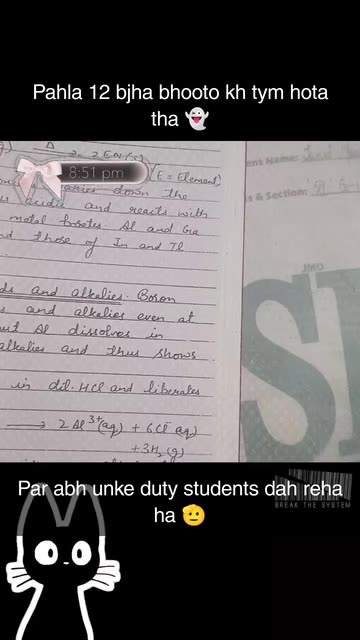 Pahla 12 bjha bhooto kh tym hota
tha 👻
8:51 pm
(E = Element)
down the
and reacts with
metal
Al and Ga
nd those of In and Tl
ds and alkalies. Boron
and alkalies even at
ut Al dissolves in
alkalies and thus shows
in dil. HCl and liberates
→ 2Al³⁺(aq) + 6Cl⁻(aq)
+ 3H₂(g)
ent Name:
s & Section:
JMD
SI
Par abh unke duty students dah reha
ha 🫡
BREAK THE SYSTEM